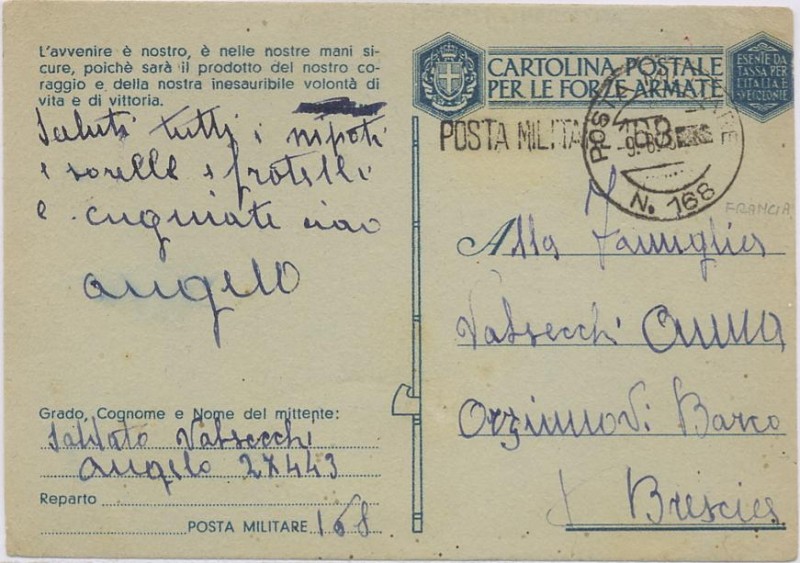 L'avvenire è nostro, è nelle nostre mani si-
cure, poichè sarà il prodotto del nostro co-
raggio e della nostra inesauribile volontà di
vita e di vittoria.
Saluti tutti i nipoti
e sorelle e fratelli
e cugniate ciao
angelo
Grado, Cognome e Nome del mittente:
Saldoto Valsecchi
angelo 27443
Reparto
POSTA MILITARE 168
CARTOLINA POSTALE
PER LE FORZE ARMATE
ESENTE DA
TASSA PER
L'ITALIA E
POSTA MILITARE
168
N. 168
FRANCIA
Alla Famiglia
Valsecchi Anna
Orzinuovi Barco
Brescia